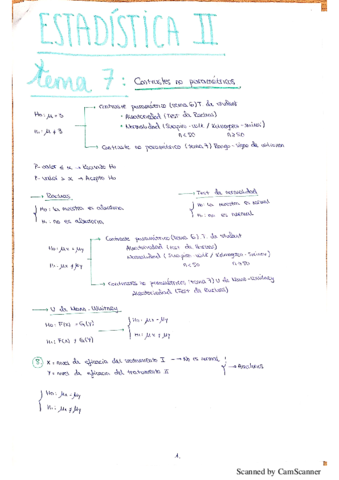 ESTADÍSTICA II
tema 7: Contrastes no paramétricos
Contraste paramétrico (tema 6) T. de student
H₀: μ = 3
• Aleatoriedad (Test de Rachas)
H₁: μ ≠ 3
• Normalidad (Shapiro-wilk / Kolmogorov-Smirnov)
n<50 n≥50
Contraste no paramétrico (tema 7) Rango-Signo de wilcoxon
P-valor ≤ α → Rechazo H₀
P-valor > α → Acepto H₀
→ Rachas
→ Test de normalidad
H₀: la muestra es aleatoria
H₀: la muestra es normal
H₁: no es aleatoria
H₁: no es normal
Contraste paramétrico (tema 6) T. de student
H₀: μx = μy
Aleatoriedad (Test de Rachas)
H₁: μx ≠ μy
Normalidad (Shapiro-wilk / Kolmogorov-Smirnov)
n<50 n≥50
Contrastes no paramétrico (tema 7) U de Mann-Whitney
Aleatoriedad (Test de Rachas)
→ U de Mann-Whitney
H₀: F(x) = G(y)
H₀: μx = μy
H₁: F(x) ≠ G(y)
H₁: μx ≠ μy
X = meses de eficacia del tratamiento I → No es normal
Y = meses de eficacia del tratamiento II
→ Analizamos
H₀: μx = μy
H₁: μx ≠ μy
1.
Scanned by CamScanner